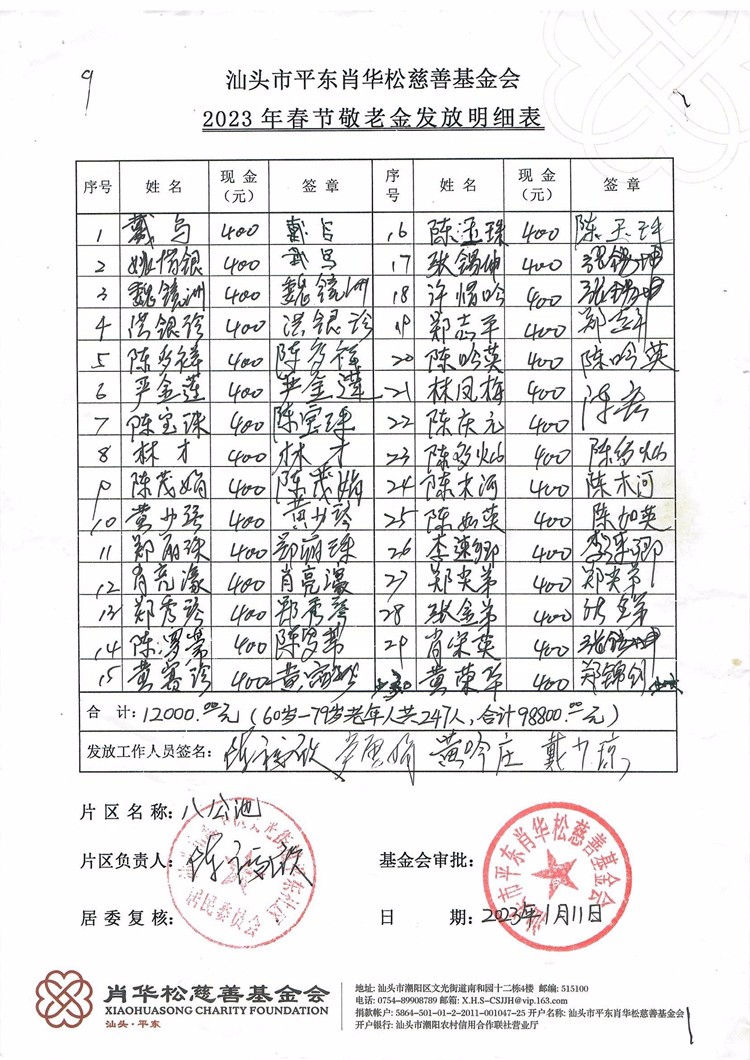 9
汕头市平东肖华松慈善基金会
2023年春节敬老金发放明细表
序号 姓名 现金（元） 签章 序号 姓名 现金（元） 签章
1 戴鸟 400 戴鸟 16 陈玉珠 400 陈玉珠
2 姚惜银 400 17 张锡坤 400 张锡坤
3 魏镜洲 400 魏镜洲 18 许惜吟 400 张锡坤
4 洪银珍 400 洪银珍 19 郑志平 400
5 陈乡祥 400 陈乡祥 20 陈吟英 400 陈吟英
6 严金莲 400 严金莲 21 林凤梅 400
7 陈宝珠 400 陈宝珠 22 陈庆元 400
8 林才 400 林才 23 陈乡灿 400 陈乡灿
9 陈茂娟 400 陈茂娟 24 陈木河 400 陈木河
10 黄少 400 黄少 25 陈如英 400 陈如英
11 郑丽珠 400 郑丽珠 26 李速卿 400 李速卿
12 肖亮濠 400 肖亮濠 27 郑尖弟 400 郑尖弟
13 郑秀琴 400 郑秀琴 28 张金弟 400
14 陈 400 陈 29 肖宋英 400 张锡坤
15 黄赛珍 400 30 黄荣华 400 郑锦钊
合计：12000.00元（60岁—79岁老年人共247人，合计98800.00元）
发放工作人员签名： 黄吟庄 戴少琼
片区名称：八公池
片区负责人：
基金会审批：
居委复核：
日期：2023年1月11日
居民委员会
汕头市平东肖华松慈善基金会
肖华松慈善基金会
XIAOHUASONG CHARITY FOUNDATION
汕头·平东
地址：汕头市潮阳区文光街道南和园十二栋4楼 邮编：515100
电话：0754-89908789 邮箱：X.H.S-CSJJH@vip.163.com
捐款帐户：5864-501-01-2-2011-001047-25 开户名称：汕头市平东肖华松慈善基金会
开户银行：汕头市潮阳农村信用合作联社营业厅